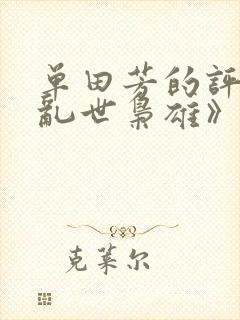 单田芳的评
乱世枭雄》
克莱尔